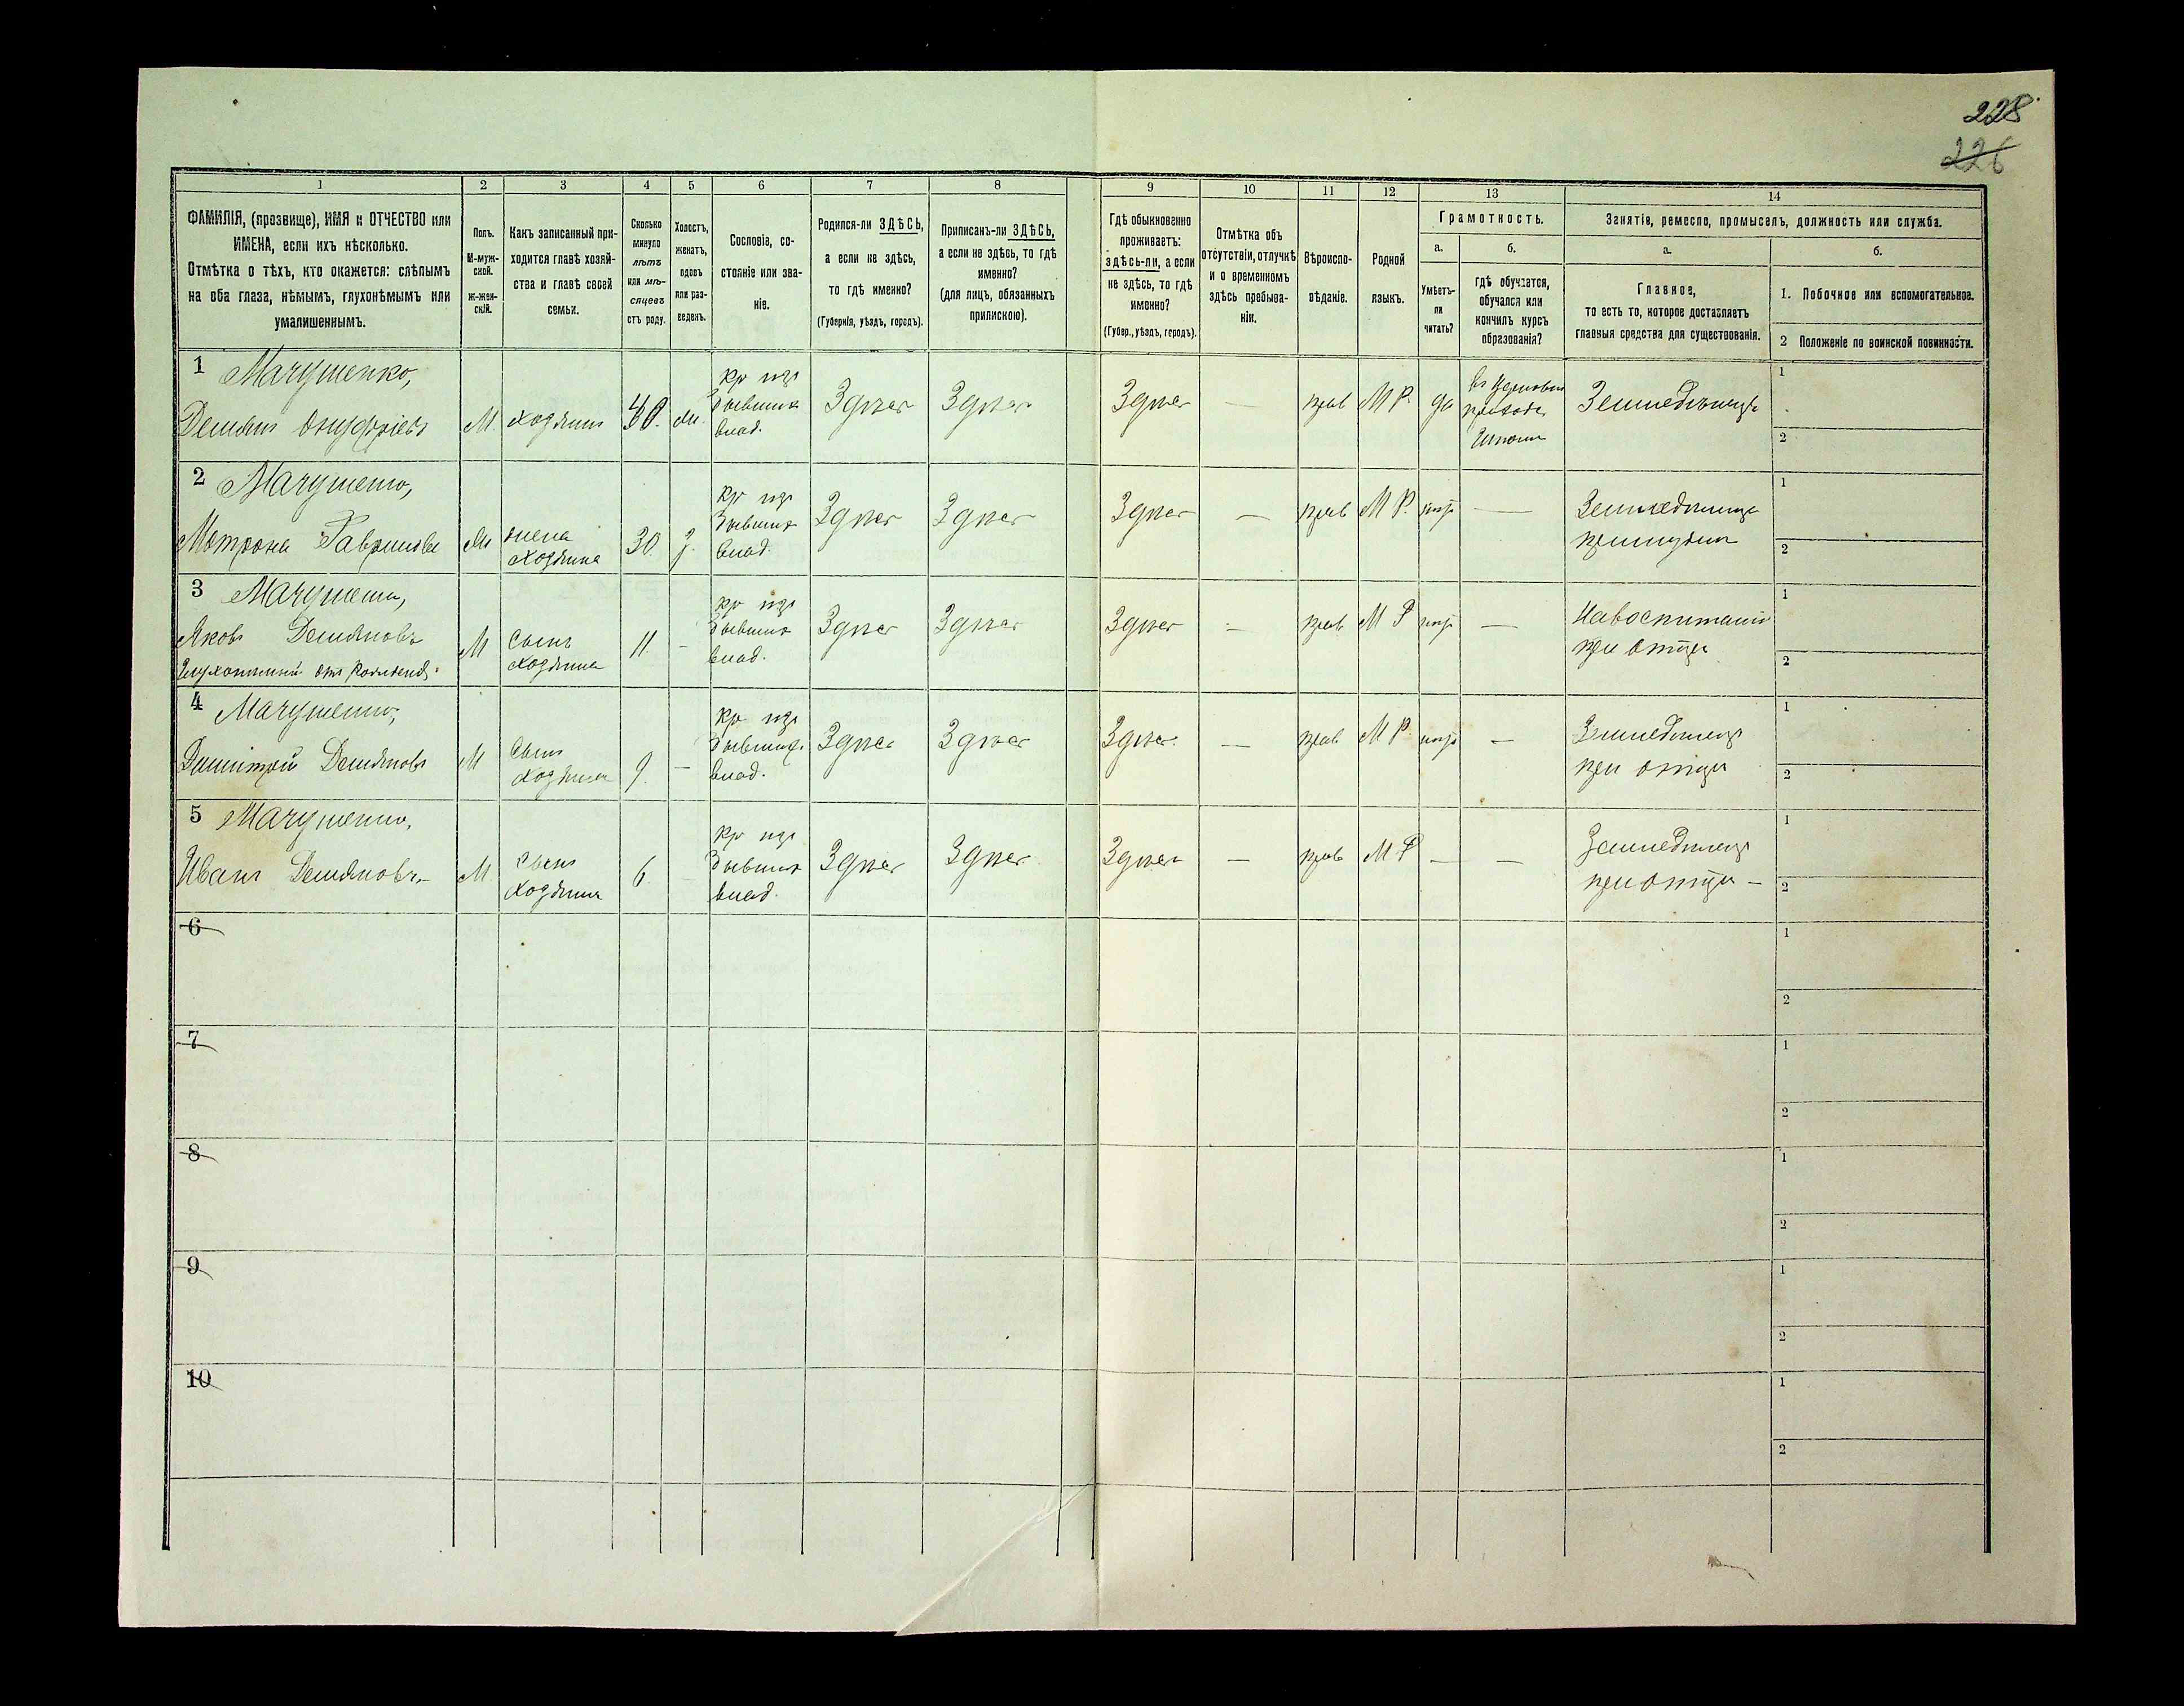 228
226
1 2 3 4 5 6 7 8 9 10 11 12 13 14
ФАМИЛІЯ, (прозвище), ИМЯ и ОТЧЕСТВО или
ИМЕНА, если ихъ нѣсколько.
Отмѣтка о тѣхъ, кто окажется: слѣпымъ
на оба глаза, нѣмымъ, глухонѣмымъ или
умалишеннымъ.
Полъ.
М-муж-
ской.
ж-жен-
скій.
Какъ записанный при-
ходится главѣ хозяй-
ства и главѣ своей
семьи.
Сколько
минуло
лѣтъ
или мѣ-
сяцевъ
отъ роду.
Холостъ,
женатъ,
вдовъ
или раз-
веденъ.
Сословіе, со-
стояніе или зва-
ніе.
Родился-ли ЗДѢСЬ,
а если не здѣсь,
то гдѣ именно?
(Губернія, уѣздъ, городъ).
Приписанъ-ли ЗДѢСЬ,
а если не здѣсь, то гдѣ
именно?
(для лицъ, обязанныхъ
припискою).
Гдѣ обыкновенно
проживаетъ:
здѣсь-ли, а если
не здѣсь, то гдѣ
именно?
(Губер., уѣздъ, городъ).
Отмѣтка объ
отсутствіи, отлучкѣ
и о временномъ
здѣсь пребыва-
ніи.
Вѣроиспо-
вѣданіе.
Родной
языкъ.
Грамотность.
а.
Умѣетъ-
ли
читать?
б.
гдѣ обучается,
обучался или
кончилъ курсъ
образованія?
Занятіе, ремесло, промыселъ, должность или служба.
а.
Главное,
то есть то, которое доставляетъ
главныя средства для существованія.
б.
1. Побочное или вспомогательное.
2 Положеніе по воинской повинности.
1 Мачушенко,
Демьянъ Онуфріевъ
М. хозяинъ
кр изъ
бывших
влад.
Здѣсь Здѣсь Здѣсь — прав М Р. да
Земледѣлецъ
1
2
2 Мачушенко,
Мотрона Гаврилова
жена
хозяина
30.
кр изъ
бывших
влад.
Здѣсь Здѣсь Здѣсь — прав М Р. —
1
2
3 Мачушенко,
Яковъ Демьяновъ
Глухонѣмый отъ рожденія
М
Сынъ
хозяина
11. -
кр изъ
бывших
влад.
Здѣсь Здѣсь Здѣсь — прав М Р —
На воспитаніи
при отцѣ
1
2
4 Мачушенко,
Дмитрій Демьяновъ
М
Сынъ
хозяина
9. —
кр изъ
бывших
влад.
Здѣсь Здѣсь Здѣсь. — прав М Р. —
Земледѣлецъ
при отцѣ
1
2
5 Мачушенко,
Иванъ Демьяновъ
М
Сынъ
хозяина
6.
кр изъ
бывших
влад.
Здѣсь Здѣсь Здѣсь — прав М Р — —
Земледѣлецъ
при отцѣ —
1
2
6
1
2
7
1
2
8
1
2
9
1
2
10
1
2